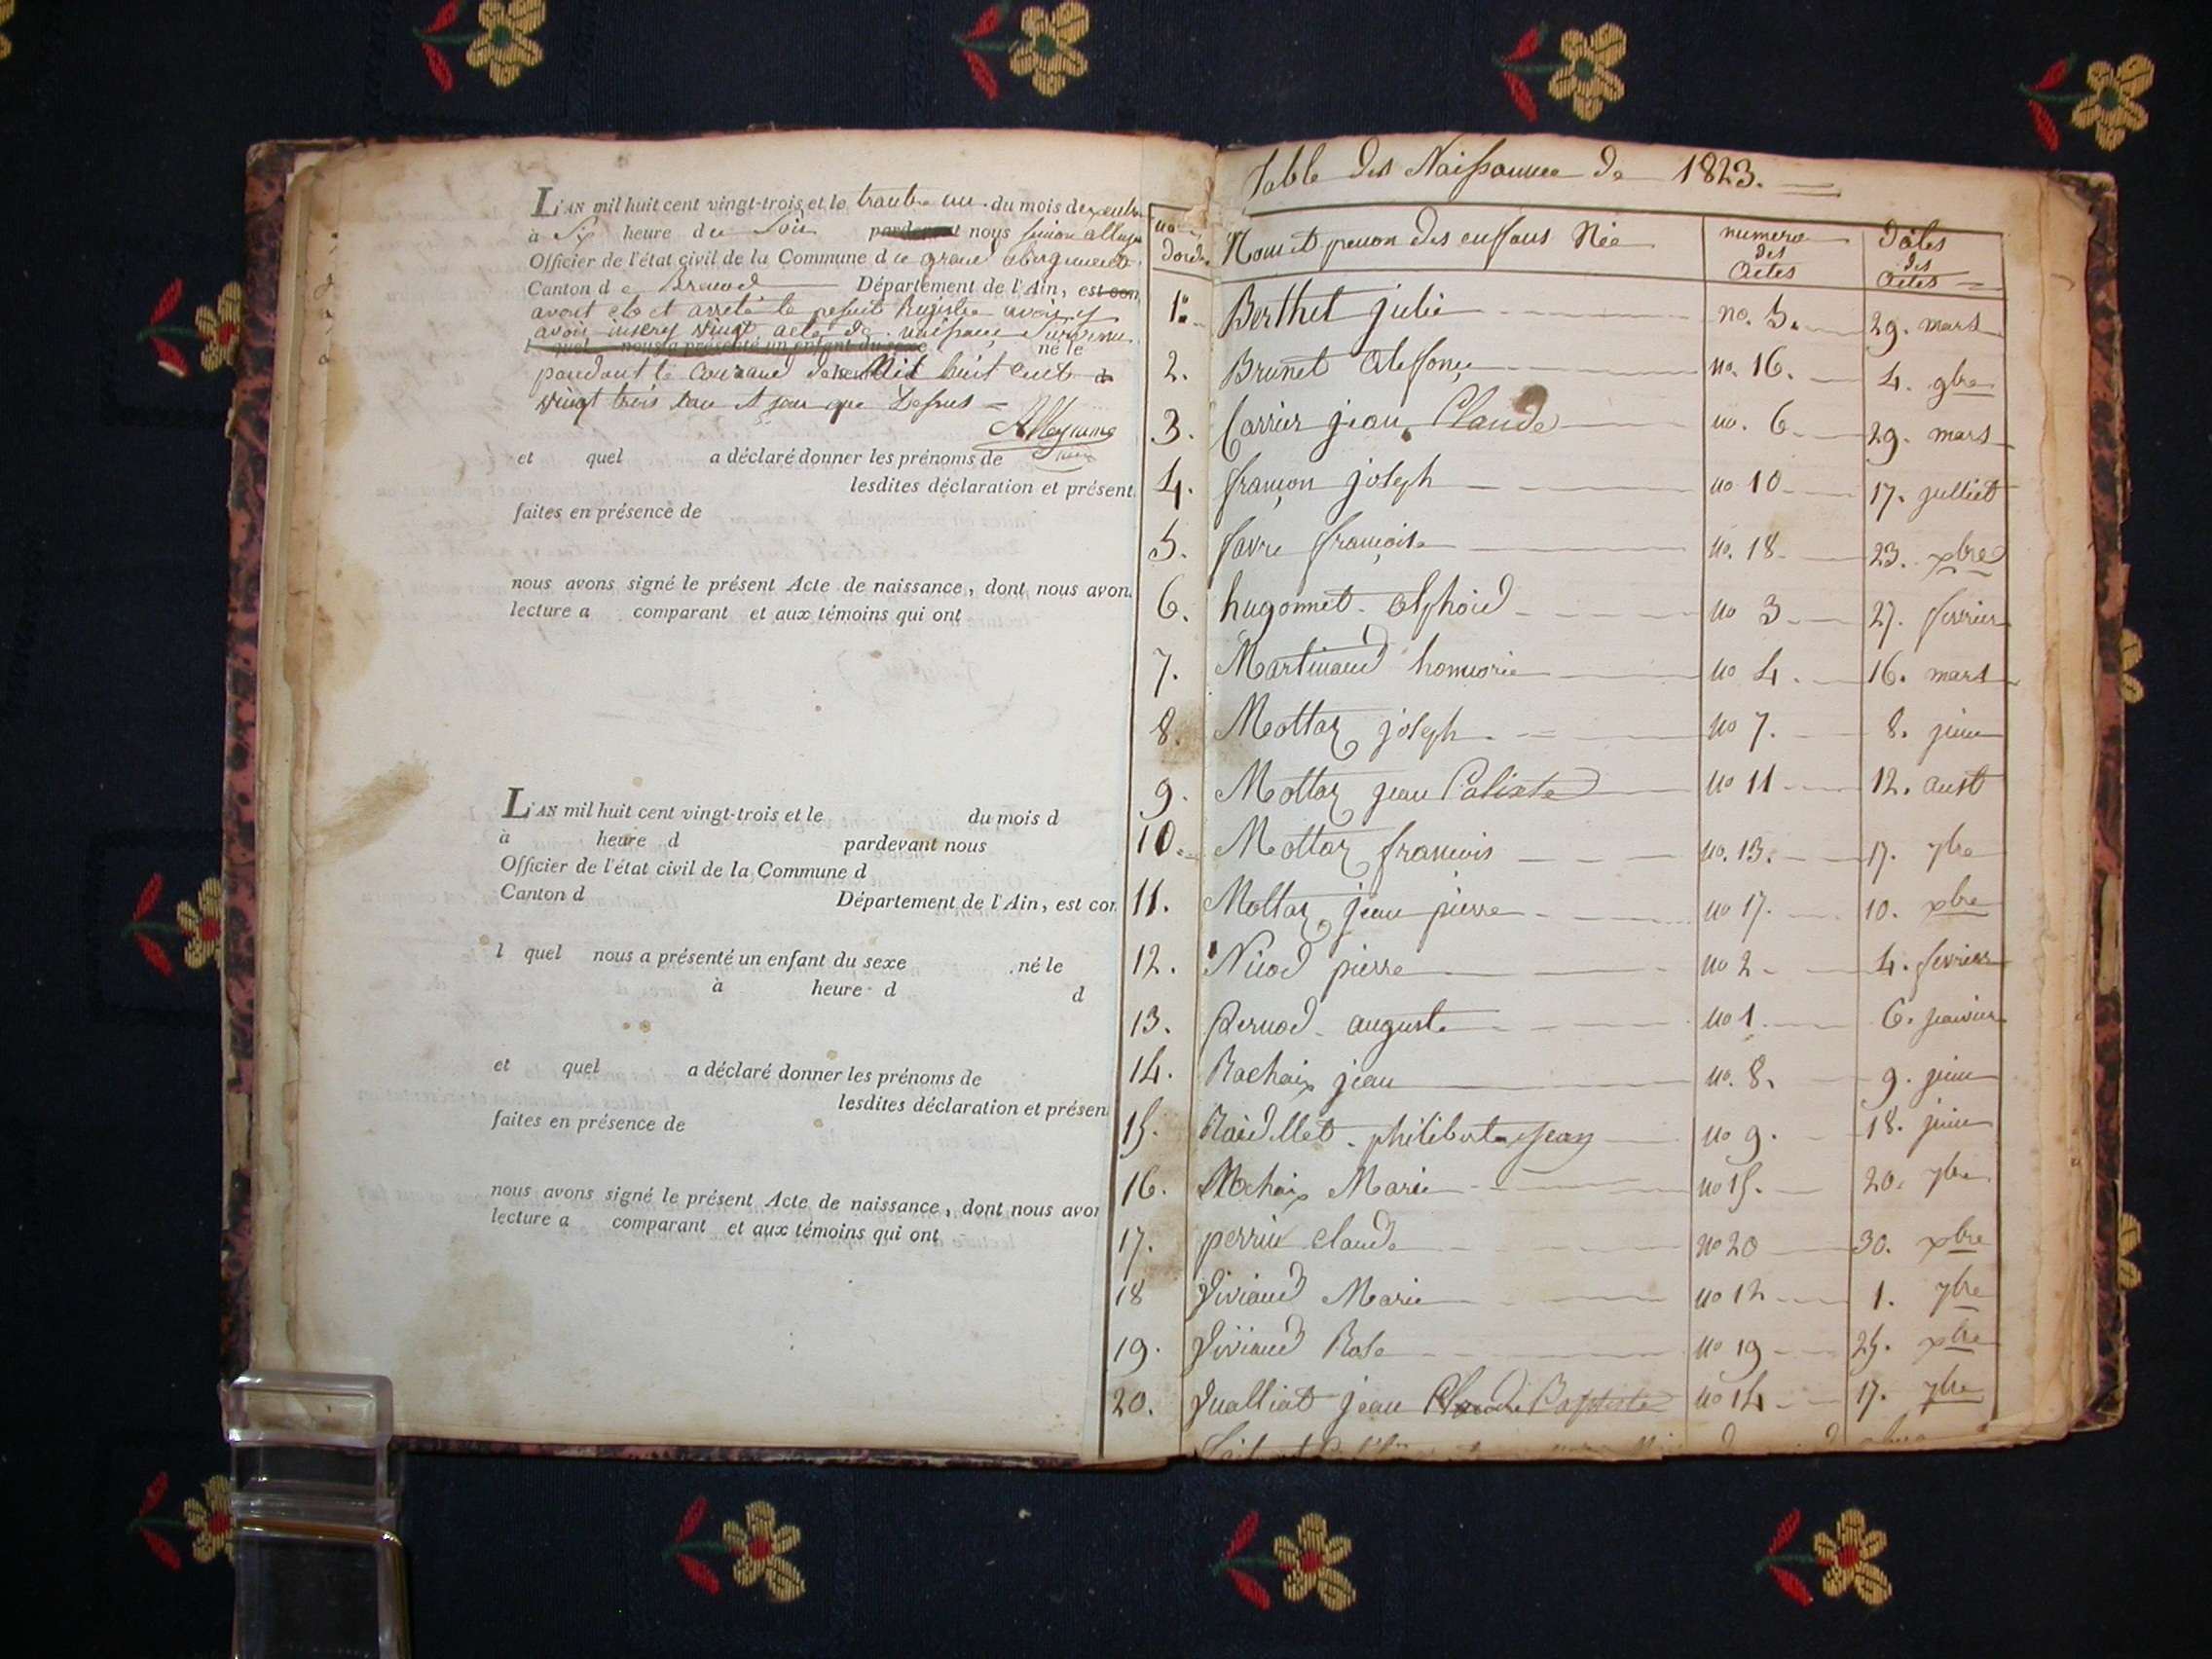 L'AN mil huit cent vingt-trois et le trante un du mois dexcembre
à Six heure du Soir pardevant nous
Officier de l'état civil de la Commune du grand abergement
Canton de Brenod Département de l'Ain, est com
avons clo et arreté le present Registre
avoir inscry vingt acte de naissance
l quel nous a présenté un enfant du sexe né le
pandant le courand de heure Mil huit cent d
vingt trois lau et jour que Dessus
et quel a déclaré donner les prénoms de
lesdites déclaration et présent
faites en présence de
nous avons signé le présent Acte de naissance, dont nous avon
lecture a comparant et aux témoins qui ont
L'AN mil huit cent vingt-trois et le du mois d
à heure d pardevant nous
Officier de l'état civil de la Commune d
Canton d Département de l'Ain, est com
l quel nous a présenté un enfant du sexe né le
à heure d d
et quel a déclaré donner les prénoms de
lesdites déclaration et présen
faites en présence de
nous avons signé le présent Acte de naissance, dont nous avon
lecture a comparant et aux témoins qui ont
Table des Naissance de 1823.
no dord. Nom et prenon des enffans Née numero des Actes Dates des Actes
1. Berthet julie no. 5. 29. mars
2. Brunet Alefonse no. 16. 4. 9bre
3. Carrier jean Claude no. 6 29. mars
4. françon joseph no 10 17. julliet
5. favre françoise no. 18 23. xbre
6. hugonnet alphoid no 3 27. fevrier
7. Martinand honnorie no 4. 16. mars
8. Mottaz joseph no 7. 8. juin
9. Mottaz jean Calixte no 11 12. aust
10. Mottaz françois no. 13. 17. 7bre
11. Mottaz jean pierre no 17. 10. xbre
12. Niod pierre no 2 4. fevrier
13. Pernod auguste no 1 6. janvier
14. Rachaix jean no. 8. 9. juin
15. philiberte Jean no 9. 18. juin
16. Marie no 15. 20. 7bre
17. perrin claude no 20 30. xbre
18 Viviand Marie no 12 1. 7bre
19. Viviand Rose no 19 25. xbre
20. Vualliat jean Claude Baptiste no 14 17. 7bre